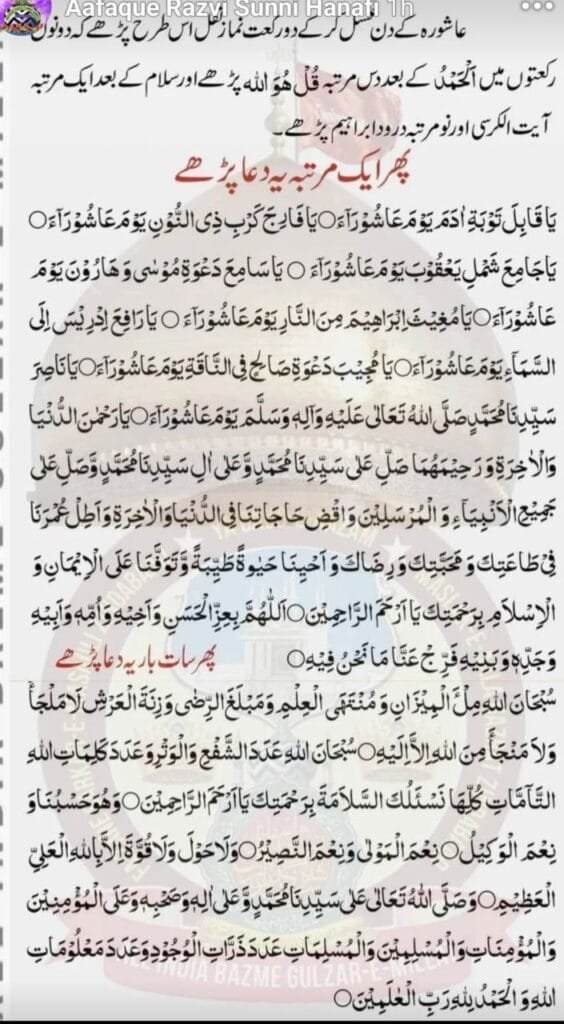 Aafaque Razvi Sunni Hanafi 1h
عاشورہ کے دن غسل کر کے دو رکعت نماز نفل اس طرح پڑھے کہ دونوں
رکعتوں میں اَلْحَمْدُ کے بعد دس مرتبہ قُلْ هُوَ اللہ پڑھے اور سلام کے بعد ایک مرتبہ
آیت الکرسی اور نو مرتبہ درود ابراہیم پڑھے۔
پھر ایک مرتبہ یہ دعا پڑھے
يَا قَابِلَ تَوْبَةِ اٰدَمَ يَوْمَ عَاشُوْرَآءَ○ يَا فَارِجَ كَرْبِ ذِى النُّوْنِ يَوْمَ عَاشُوْرَآءَ○
يَا جَامِعَ شَمْلِ يَعْقُوْبَ يَوْمَ عَاشُوْرَآءَ○ يَا سَامِعَ دَعْوَةِ مُوْسٰى وَ هَارُوْنَ يَوْمَ
عَاشُوْرَآءَ○ يَا مُغِيْثَ اِبْرَاهِيْمَ مِنَ النَّارِ يَوْمَ عَاشُوْرَآءَ○ يَا رَافِعَ اِدْرِيْسَ اِلَى
السَّمَآءِ يَوْمَ عَاشُوْرَآءَ○ يَا مُجِيْبَ دَعْوَةِ صَالِحٍ فِى النَّاقَةِ يَوْمَ عَاشُوْرَآءَ○ يَا نَاصِرَ
سَيِّدِنَا مُحَمَّدٍ صَلَّى اللهُ تَعَالٰى عَلَيْهِ وَاٰلِهٖ وَسَلَّمَ يَوْمَ عَاشُوْرَآءَ○ يَا رَحْمٰنَ الدُّنْيَا
وَالْاٰخِرَةِ وَ رَحِيْمَهُمَا صَلِّ عَلٰى سَيِّدِنَا مُحَمَّدٍ وَّ عَلٰى اٰلِ سَيِّدِنَا مُحَمَّدٍ وَّ صَلِّ عَلٰى
جَمِيْعِ الْاَنْبِيَآءِ وَ الْمُرْسَلِيْنَ وَ اقْضِ حَاجَاتِنَا فِى الدُّنْيَا وَ الْاٰخِرَةِ وَ اَطِلْ عُمْرَنَا
فِىْ طَاعَتِكَ وَ مَحَبَّتِكَ وَ رِضَاكَ وَ اَحْيِنَا حَيٰوةً طَيِّبَةً وَّ تَوَفَّنَا عَلَى الْاِيْمَانِ وَ
الْاِسْلَامِ بِرَحْمَتِكَ يَا اَرْحَمَ الرَّاحِمِيْنَ○ اَللّٰهُمَّ بِعِزِّ الْحَسَنِ وَ اَخِيْهِ وَ اُمِّهٖ وَ اَبِيْهِ
وَ جَدِّهٖ وَ بَنِيْهِ فَرِّجْ عَنَّا مَا نَحْنُ فِيْهِ○ پھر سات بار یہ دعا پڑھے
سُبْحَانَ اللهِ مِلْءَ الْمِيْزَانِ وَ مُنْتَهَى الْعِلْمِ وَ مَبْلَغَ الرِّضٰى وَ زِنَةَ الْعَرْشِ لَا مَلْجَأَ
وَ لَا مَنْجَأَ مِنَ اللهِ اِلَّا اِلَيْهِ○ سُبْحَانَ اللهِ عَدَدَ الشَّفْعِ وَ الْوَتْرِ وَ عَدَدَ كَلِمَاتِ اللهِ
التَّآمَّاتِ كُلِّهَا نَسْئَلُكَ السَّلَامَةَ بِرَحْمَتِكَ يَا اَرْحَمَ الرَّاحِمِيْنَ○ وَ هُوَ حَسْبُنَا وَ
نِعْمَ الْوَكِيْلُ○ نِعْمَ الْمَوْلٰى وَ نِعْمَ النَّصِيْرُ○ وَ لَا حَوْلَ وَ لَا قُوَّةَ اِلَّا بِاللهِ الْعَلِيِّ
الْعَظِيْمِ○ وَ صَلَّى اللهُ تَعَالٰى عَلٰى سَيِّدِنَا مُحَمَّدٍ وَّ عَلٰى اٰلِهٖ وَ صَحْبِهٖ وَ عَلَى الْمُؤْمِنِيْنَ
وَ الْمُؤْمِنَاتِ وَ الْمُسْلِمِيْنَ وَ الْمُسْلِمَاتِ عَدَدَ ذَرَّاتِ الْوُجُوْدِ وَ عَدَدَ مَعْلُوْمَاتِ
اللهِ وَ الْحَمْدُ لِلّٰهِ رَبِّ الْعٰلَمِيْنَ○
INDIA BAZME GULZAR-E-MILLAT